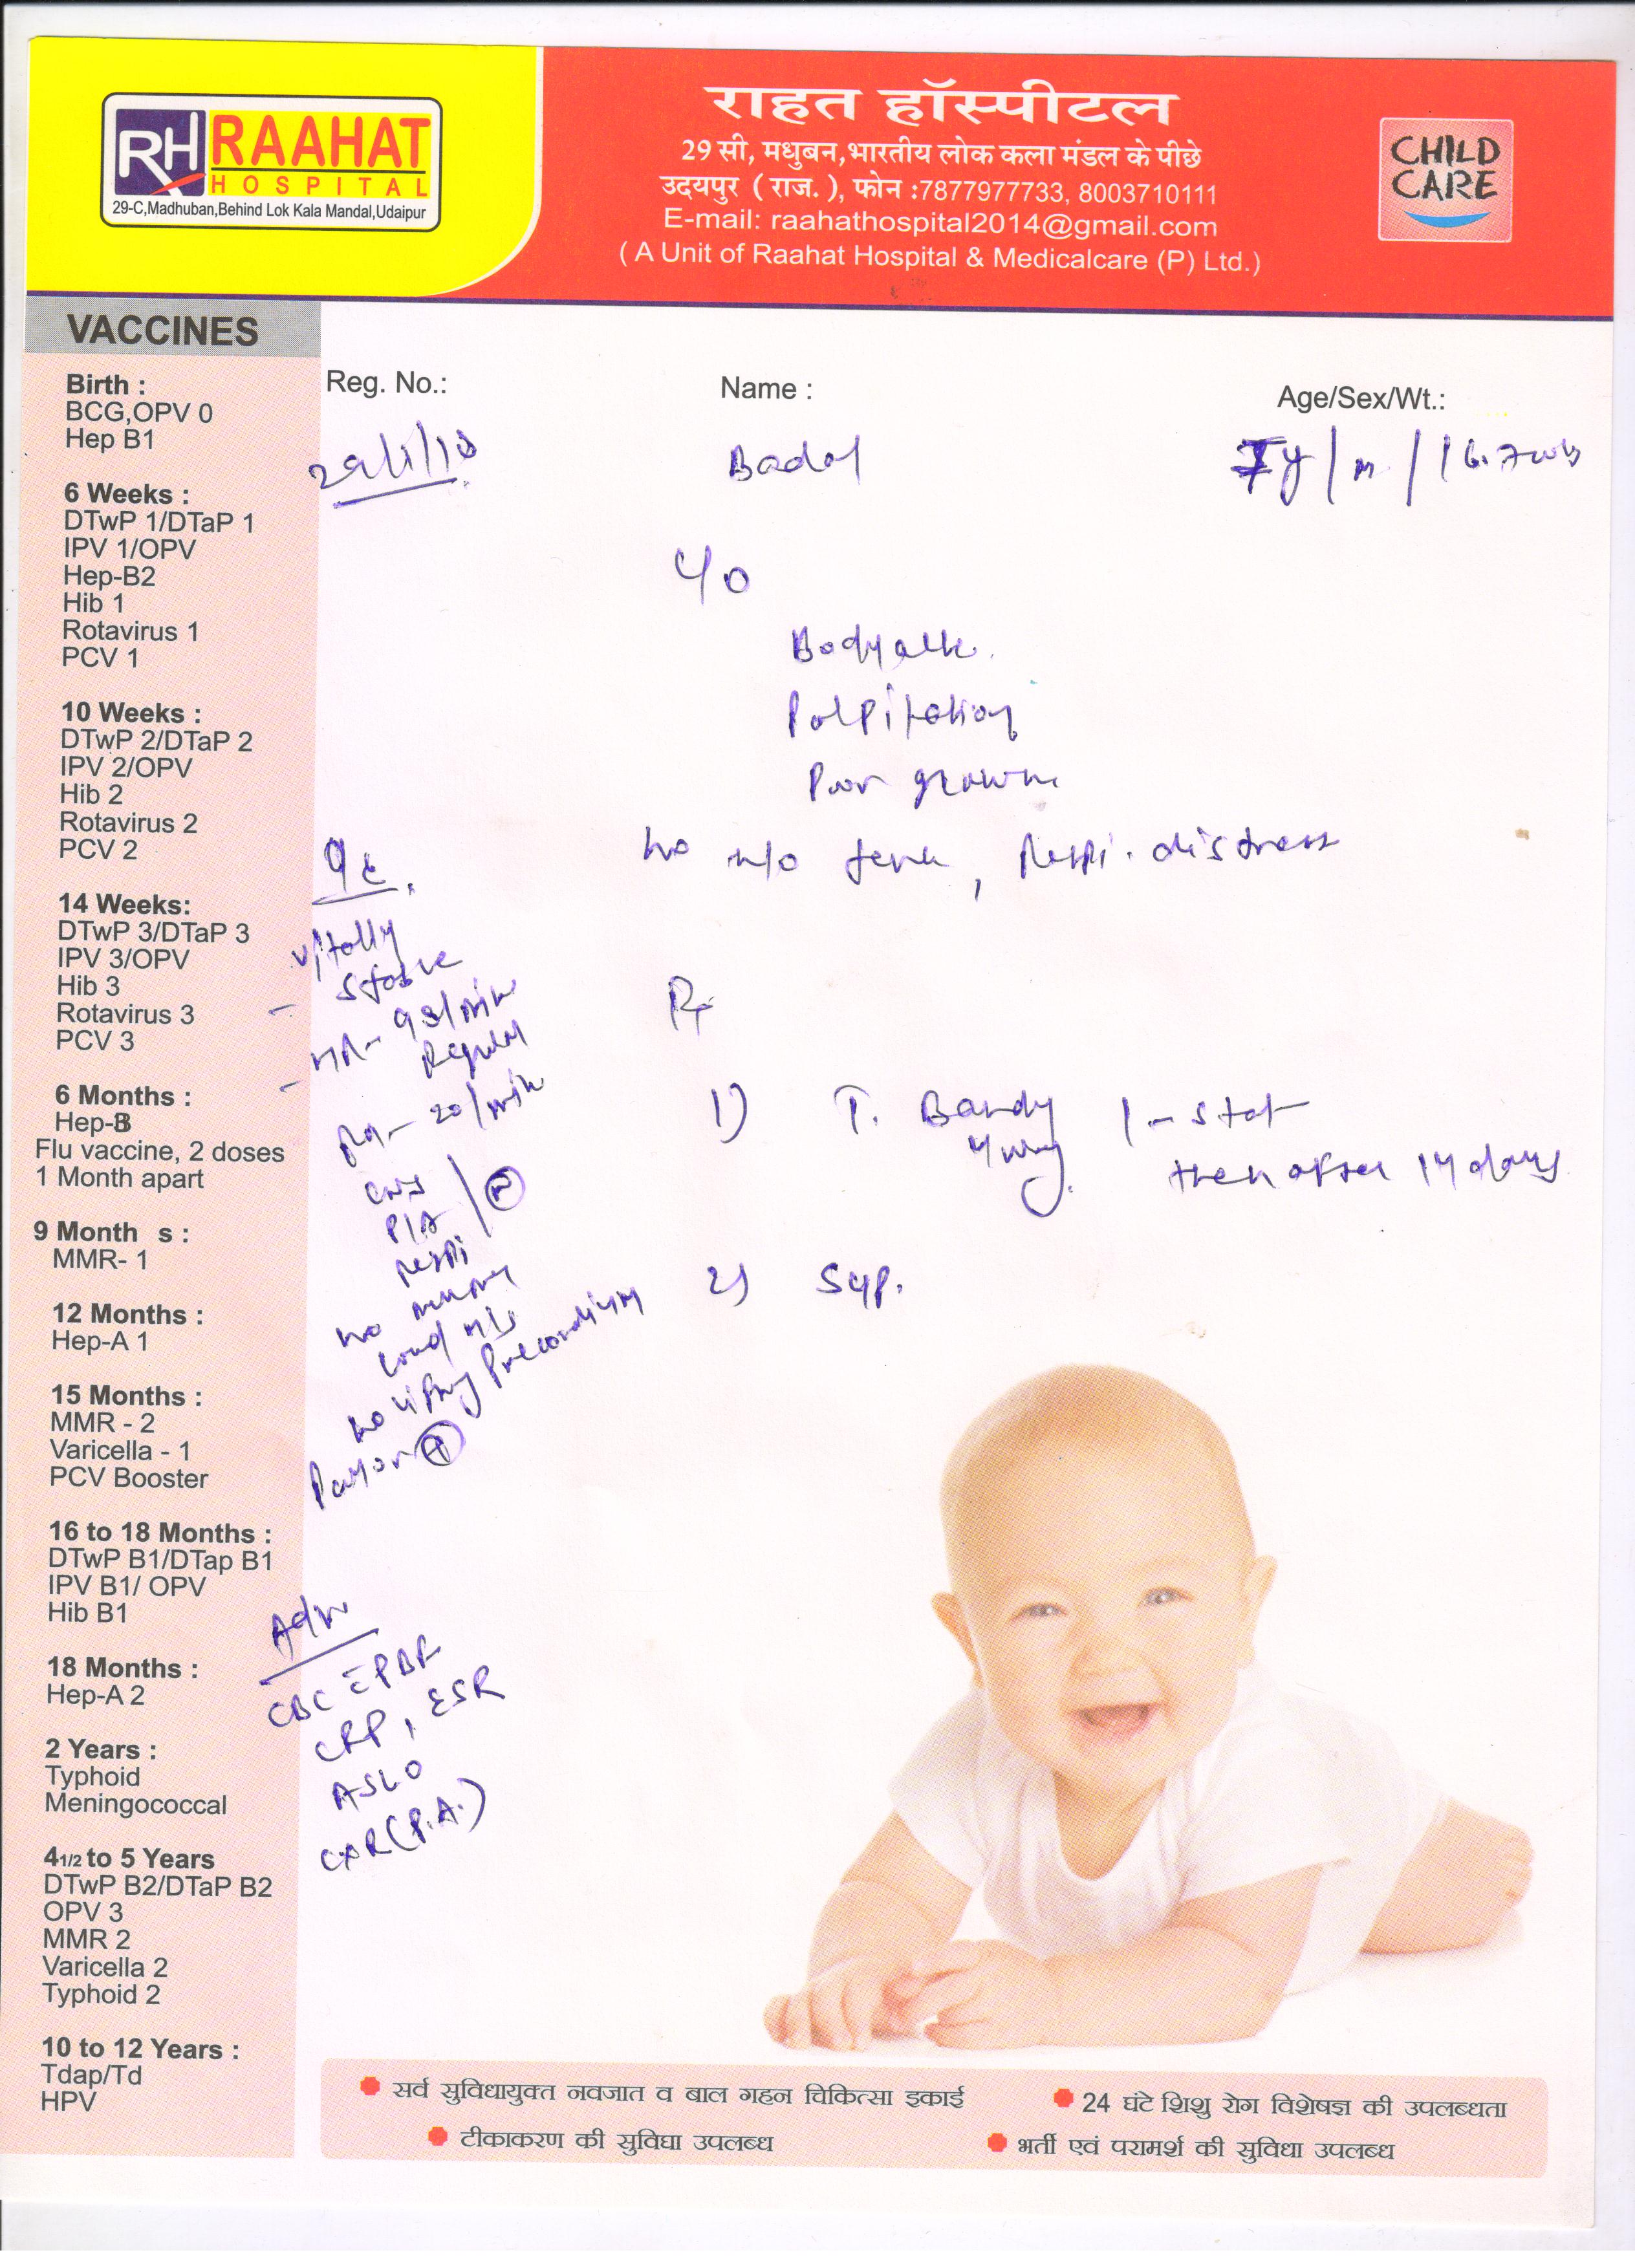 RH RAAHAT
HOSPITAL
29-C,Madhuban,Behind Lok Kala Mandal,Udaipur
राहत हॉस्पीटल
29 सी, मधुबन,भारतीय लोक कला मंडल के पीछे
उदयपुर ( राज. ), फोन :7877977733, 8003710111
E-mail: raahathospital2014@gmail.com
( A Unit of Raahat Hospital & Medicalcare (P) Ltd.)
CHILD
CARE
VACCINES
Birth :
BCG,OPV 0
Hep B1
6 Weeks :
DTwP 1/DTaP 1
IPV 1/OPV
Hep-B2
Hib 1
Rotavirus 1
PCV 1
10 Weeks :
DTwP 2/DTaP 2
IPV 2/OPV
Hib 2
Rotavirus 2
PCV 2
14 Weeks:
DTwP 3/DTaP 3
IPV 3/OPV
Hib 3
Rotavirus 3
PCV 3
6 Months :
Hep-B3
Flu vaccine, 2 doses
1 Month apart
9 Month s :
MMR- 1
12 Months :
Hep-A 1
15 Months :
MMR - 2
Varicella - 1
PCV Booster
16 to 18 Months :
DTwP B1/DTap B1
IPV B1/ OPV
Hib B1
18 Months :
Hep-A 2
2 Years :
Typhoid
Meningococcal
4 1/2 to 5 Years
DTwP B2/DTaP B2
OPV 3
MMR 2
Varicella 2
Typhoid 2
10 to 12 Years :
Tdap/Td
HPV
Reg. No.:
Name :
Age/Sex/Wt.:
Badal
C/o
Bodyache
Palpitation
Poor growth
No h/o fever, Respi. distress
O/E
Vitally
- stable
- HR- 98/min
Regular
RR- 20/min
CNS
P/A
Respi
No murmur
loud
Precordium
Rx
1) T. Bandy 1 - stat
then after 14 days
2) Syp.
Adv
CBC c̄ PBF
CRP, ESR
ASLO
CXR (P.A.)
सर्व सुविधायुक्त नवजात व बाल गहन चिकित्सा इकाई
24 घंटे शिशु रोग विशेषज्ञ की उपलब्धता
टीकाकरण की सुविधा उपलब्ध
भर्ती एवं परामर्श की सुविधा उपलब्ध